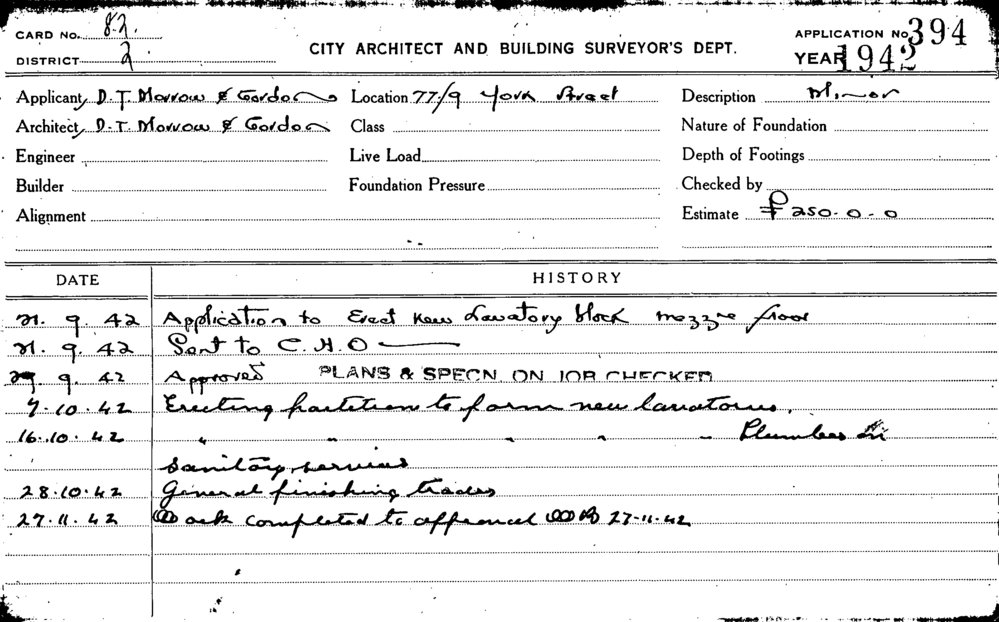 CARD No. 82.
DISTRICT 2
CITY ARCHITECT AND BUILDING SURVEYOR'S DEPT.
APPLICATION No. 394
YEAR 1942
Applicant, D. T. Morrow & Gordon Location 77/9 York Street Description Minor
Architect, D. T. Morrow & Gordon Class Nature of Foundation
Engineer Live Load Depth of Footings
Builder Foundation Pressure Checked by
Alignment Estimate £250-0-0
DATE HISTORY
21. 9. 42 Application to Erect New Lavatory block mezz'ne floor
21. 9. 42 Sent to C. H. O
29. 9. 42 Approved PLANS & SPECN. ON JOB CHECKED
7.10.42 Erecting partition to form new lavatories.
16.10.42 " " " " " Plumber
Sanitary services
28.10.42 General finishing trades
27.11.42 Work completed to approval 27-11-42